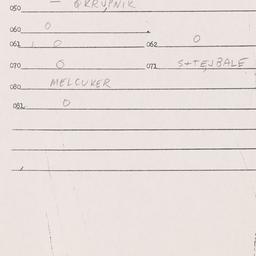 050 — QKRUPNIK
060 0
061 0 062 0
070 0 071 S+TEJBALE
080 MELCUKER
081 0